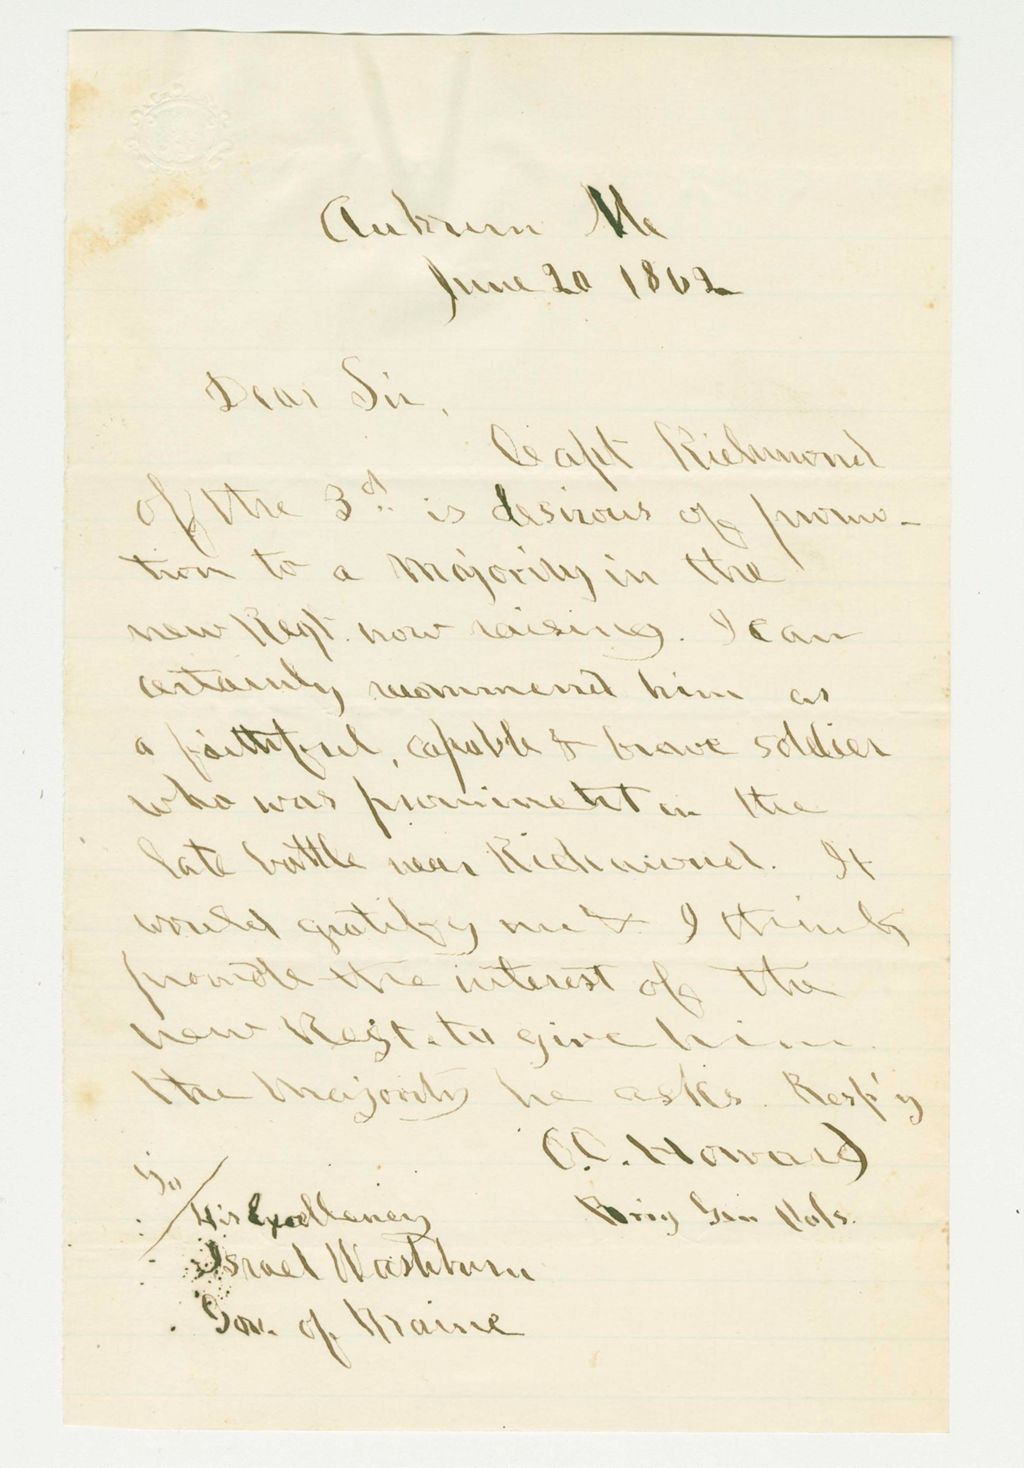 Auburn Me
June 20 1862
Dear Sir,
Capt Richmond
of the 3d. is desirous of promo-
tion to a Majority in the
new Regt. now raising. I can
certainly recommend him as
a faithful, capable & brave soldier
who was prominent in the
late battle near Richmond. It
would gratify me & I think
promote the interest of the
new Regt. to give him
the Majority he asks. Resp'y
O.O. Howard
Brig Gen Vols.
To
His Excellency
Israel Washburn
Gov. of Maine